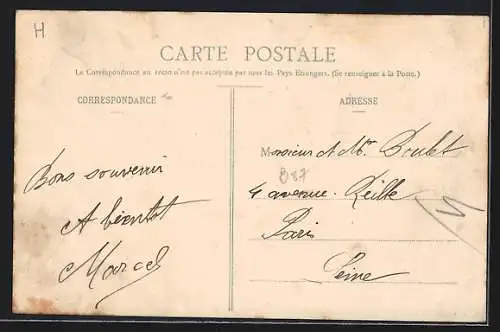 H
CARTE POSTALE
La Correspondance au recto n'est pas acceptée par tous les Pays Etrangers. (Se renseigner à la Poste.)
CORRESPONDANCE
ADRESSE
Bons souvenir
A bientot
Marcel
Monsieur et Me Doulet
887
4 avenue Reille
Paris
Seine